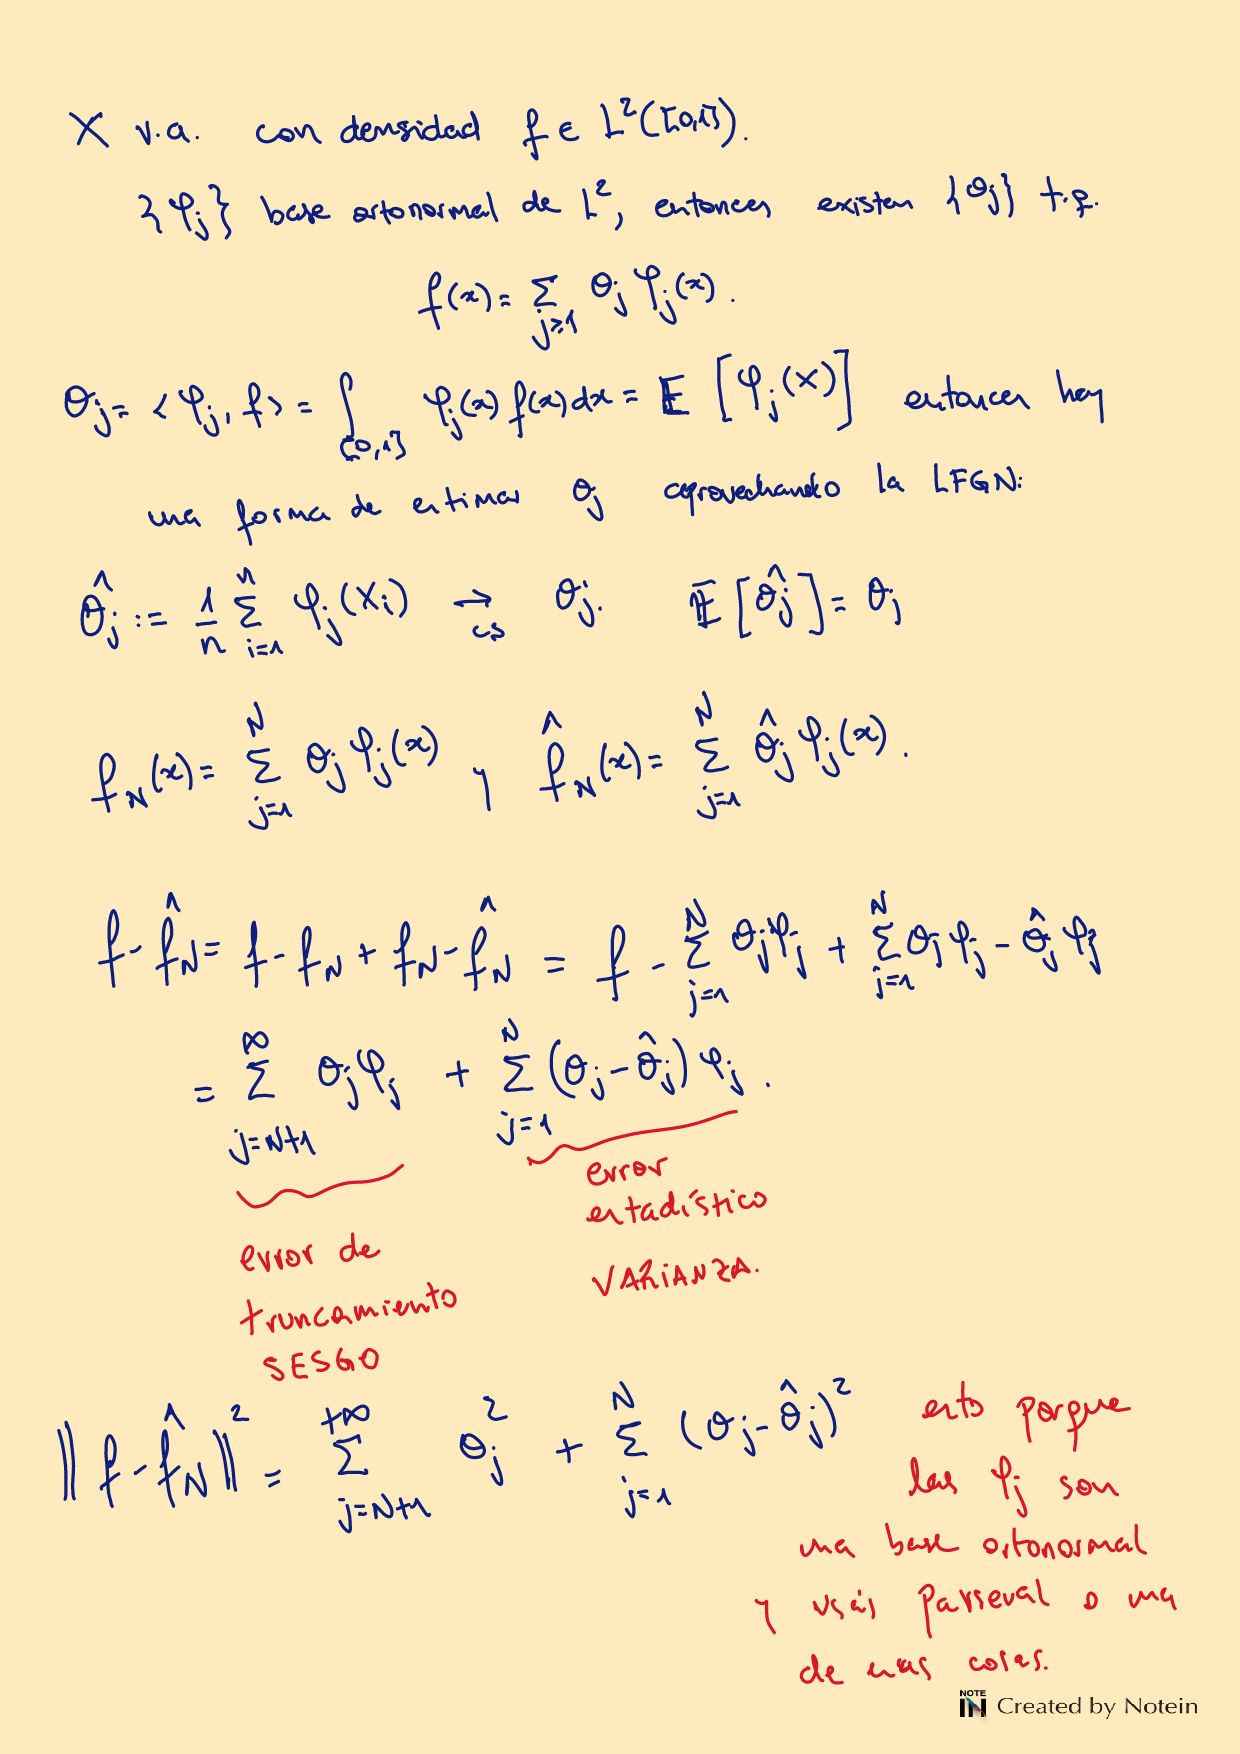 X v.a. con densidad f ∈ L²([0,1]).
{φj} base ortonormal de L², entonces existen {θj} t.q.
f(x) = Σ_{j≥1} θj φj(x).
θj = <φj, f> = ∫_{[0,1]} φj(x) f(x) dx = E[φj(X)] entonces hay
una forma de estimar θj aprovechando la LFGN:
θ̂j := 1/n Σ_{i=1}^{n} φj(Xi) →_{cs} θj. E[θ̂j] = θj
f_N(x) = Σ_{j=1}^{N} θj φj(x) y f̂_N(x) = Σ_{j=1}^{N} θ̂j φj(x).
f - f̂_N = f - f_N + f_N - f̂_N = f - Σ_{j=1}^{N} θj φj + Σ_{j=1}^{N} θj φj - θ̂j φj
= Σ_{j=N+1}^{∞} θj φj + Σ_{j=1}^{N} (θj - θ̂j) φj.
error
estadístico
VARIANZA.
error de
truncamiento
SESGO
||f - f̂_N||² = Σ_{j=N+1}^{+∞} θj² + Σ_{j=1}^{N} (θj - θ̂j)²
esto porque
las φj son
una base ortonormal
y usás Parseval o una
de esas cosas.
NOTE IN Created by Notein